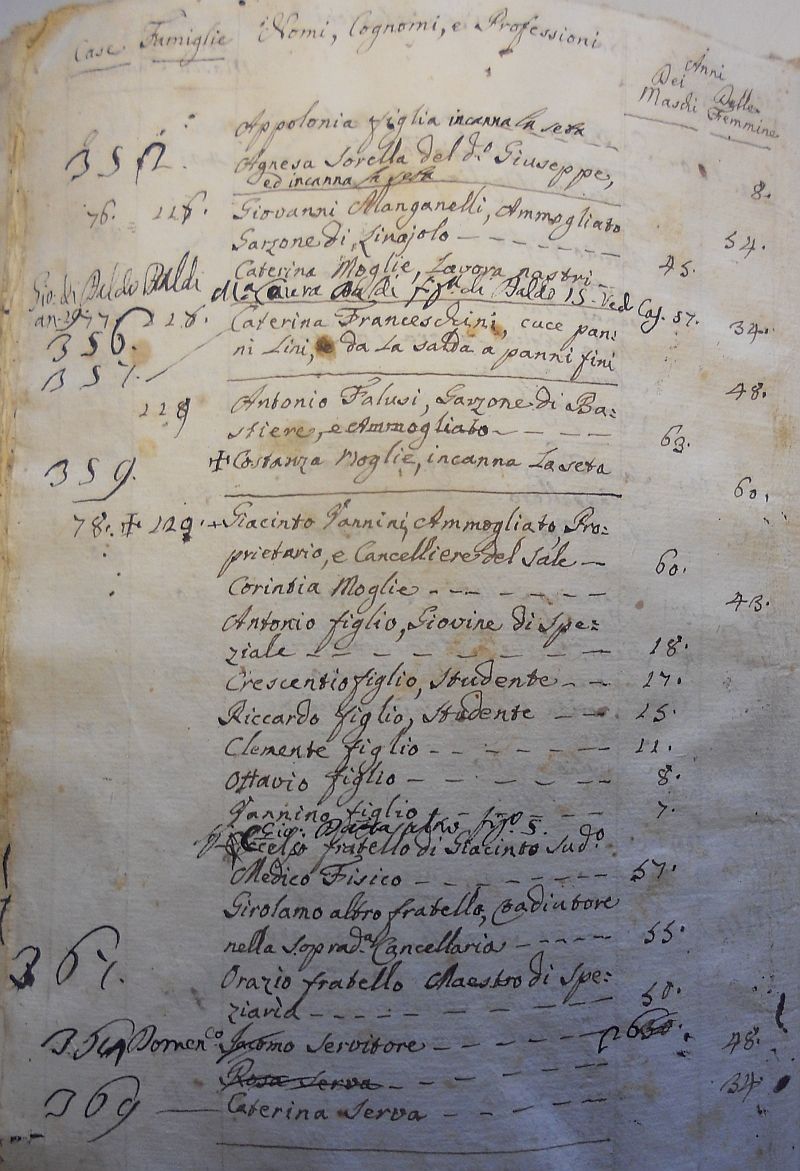 Case Famiglie Nomi, Cognomi, e Professioni
Anni
Dei Maschi Delle Femmine
Appolonia figlia incanna la seta
352. Agnesa Sorella del do. Giuseppe, 8.
ed incanna la seta
76. 226. Giovanni Manganelli, Ammogliato 54.
Garzone di Linajolo 45.
Caterina Moglie, Lavora nastri
Gio. di Baldo Baldi di Baldo 15. Ved. Cas. 57.
77 228. Caterina Franceschini, cuce pan= 34.
356. ni Lini, e da la salda a panni fini
357. 48.
228 Antonio Falusi, Garzone di Ba=
stiere, e Ammogliato 63.
359. + Costanza Moglie, incanna La seta
60.
78. + 229. + Giacinto Vannini, Ammogliato Pro=
prietario, e Cancelliere del Sale 60.
Corintia Moglie 43.
Antonio figlio, Giovine di Spe=
ziale 18.
Crescentio figlio, Studente 17.
Riccardo figlio, Studente 15.
Clemente figlio 11.
Ottavio figlio 8.
Vannino figlio 7.
altro figo. 5.
fratello di Giacinto Sudo.
Medico Fisico 57.
Girolamo altro fratello, Coadiutore
nella soprada. Cancellaria 55.
367. Orazio fratello Maestro di Spe=
ziaria 50.
Domenco. Servitore 48.
Rosa Serva 34.
369 Caterina Serva